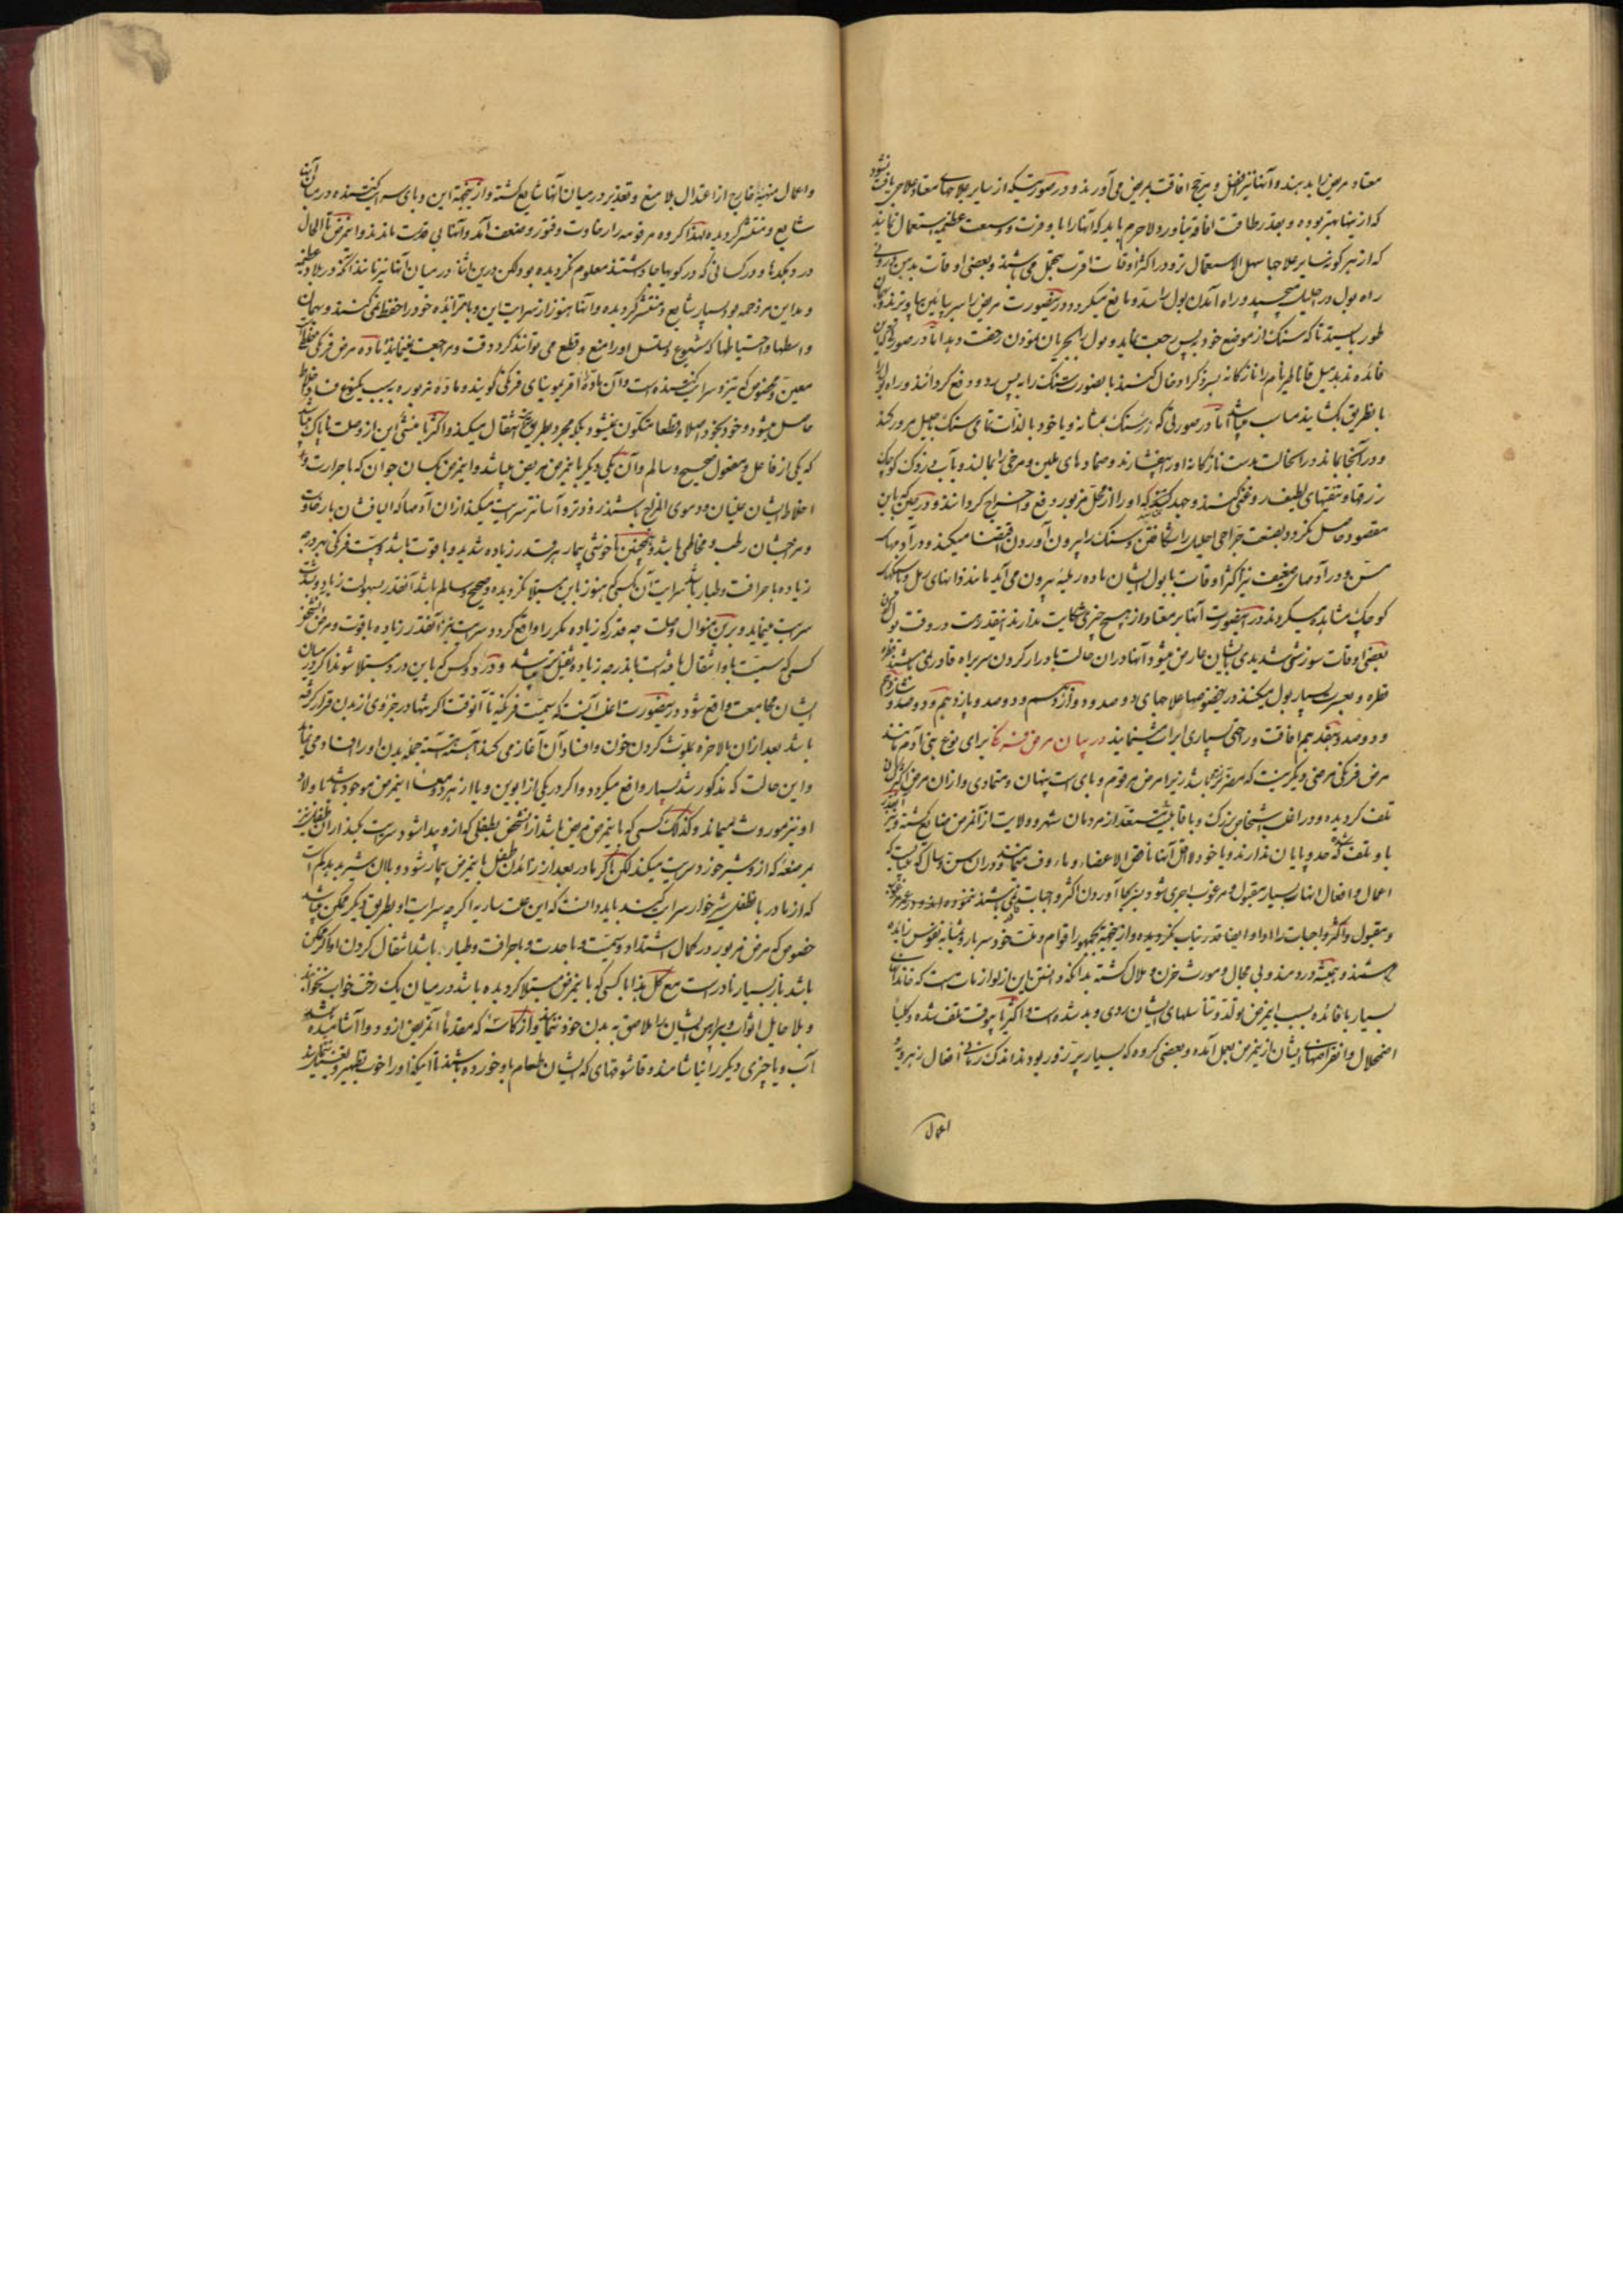 معتاد مریض باید بدهند و آنها نیز افضل و بر نهج افاقت بمریض می‌آورند و در صورتیکه از سایر علاجهای معتاد علاجی یافت نشود
که از اینها بهتر بوده و بقدر طاقت افاقه نیاورد لاجرم باید که آنها را با وفرت و وسعت عظیمه استعمال نمایند
که از هر گونه سایر علاجها سهل الاستعمال‌تر و در اکثر اوقات اقرب بتعجیل می‌باشند و بعضی اوقات بدین
راه بول در احلیل میچسپد و راه آمدن بول را سد و مانع میکردد در اینصورت مریض را سر پائین پاها
طور بایستند تا که سنک از موضع خود پس رجعت نماید و بول را بجریان ماذون رخصت دهد اما در صورتی که این
فائده ندهد میل قاناطیر نام را نازکانه بسر ذکر ادخال کنند باینصورت سنک را به پس رد و دفع کردانند و راه بول را
باینطریق بکشایند مناسب میباشد اما در صورتی که سنک بمثانه و یا خود بالذات
و در آنجا بماند در آنحالت بدست نازکانه او را بیفشارند و ضمادهای ملین و مرخی را بمالند و بآب
زرقها و تنقیهای لطیف روغنی کنند و جهد کنند که او را از محل مزبور دفع و اخراج کردانند و در حینی که باین
مقصود حاصل نکردد بصنعت جراحی احلیل را شکافتن و سنک را بیرون آوردن اقتضا میکند و در آدمهای
مسن و در آدمهای ضعیف نیز اکثر اوقات با بول ایشان ماده رملیه بیرون می‌آید مانند دانهای رمل و یا سنکهای
کوچک مشاهده میکردند در اینصورت آنها بر معتاد از هیچ چیزی شکایت ندارند اینقدر هست در وقت بول
بعضی اوقات سوزشی شدیدی بایشان عارض میشود آنها در آن حالت بادرار کردن سر براه قادر نمی‌باشند قطره
قطره و بعسرت بسیار بول میکنند در اینخصوصها علاجهای دوصد و دوازدهم و دوصد و پازدهم و دوصد و شانزدهم
و دوصد و هفدهم افاقت و راحتی بسیاری ایراث مینمایند در بیان مرض فرنکی برای نوع بنی آدم مانند
مرض فرنکی مرضی دیکر نیست که مضرتر باشد زیرا مرض مرقوم وبای است پنهان و متمادی و از آن مرض
تلف کردیده و در اغلب اشخاص بزرک و با قابلیت مستعد از مردمان شهر و ولایت از آنمرض ضایع کشته
یا و تلف شده که حد و پایان ندارند و یا خود لااقل آنها ناقص الاعضاء و ماؤف میمانند و در آن سن و سال که میبایست که
اعمال و افعال آنها بسیار مقبول و مرغوب اجری شود و بجا آوردن اکثر واجبات
و مقبول و اکثر واجبات را ادا و ایفا قدرتیاب نکردیده و از اینجهة بجمهور اقوام و ملت خود سربار و بمثابه نفوس زایده
هستند و همیشه دردمند و بی مجال و مورث حزن و ملال کشته بدانکه دانستن این از لوازمات هست که خاندانهای
بسیار با فائده بسبب اینمرض تولد و تناسلهای ایشان ردی و بد شده است و اکثر نابوقت تلف شده و کلیاً
اضمحلال و انقراضهای ایشان از اینمرض بعمل آمده و بعضی کروه که بسیار پر زور بودند اندک زمانی افعال
اعمال
واعمال منهیّه خارج از اعتدال بلا منع و تعذیر در میان آنها شایع کشته و از اینجهة این وبای سرایت‌کننده در میان آن
شایع و منتشر کردیده لهذا کروه مرقومه را رخاوت و فتور و ضعف آمد و آنها بی قدرت ماندند و اینمرض تا الحال
در دهکدها و در کسانی که در کوهها جا داشتند معلوم نکردیده بود لکن درین اثنا در میان آنها نیز
و مداین مزدحمه بود بسیار شایع و منتشر کردیده و آنها هنوز از سرایت این وبا متزایده خود را حفظ نمی‌کنند و بهمان
واسطها و احتیاطها که شیوع و تسلسل او را منع و قطع می‌توانند کرد دقت و مراجعت نمینمایند ماده مرض فرنکی
معین و مخصوص که تیز و سرایت‌کننده است و آن ماده را قریبوینای فرنکی کویند و ماده مزبوره بسبب یکنوع فساد اخلاط
حاصل میشود و خود بخود اصلا و قطعا متکون نمیشود بلکه مجرد بطریق تلقیح انتقال میکند و اکثریا منشئی این از وصلت ناپاک میباشد
که یکی از فاعل و مفعول صحیح و سالم و آن یکی دیکر باینمرض مریض میباشد و اینمرض بکسان جوان که با حرارت و
اخلاط ایشان غلیان و دموی المزاج باشند زودتر و آسانتر سرایت میکند از آن آدمها که الیافشان با رخاوت
و مزاجشان رطب و مخاطی باشد و همچنین ناخوشی بیمار هر قدر زیاده شدید و با قوت باشد و سمیت فرنکی بهر درجه
زیاده با حرافت و طیار باشد سرایت آن بکسی که هنوز باین مبتلا نکردیده و صحیح و سالم باشد آنقدر بسهولت زیاد و بشدت
سرایت مینماید و برین منوال وصلت چه قدر که زیاده مکرر واقع کردد سرایت نیز آنقدر زیاده با قوت و مرض آنشخص
کسی که سمیت باو انتقال یافته است بآندرجه زیاده ثقیل‌تر میباشد و در دو کس که باین درد مبتلا شوند اکر در میان
ایشان مجامعت واقع شود در اینصورت اغلب آنست که سمیت فرنکیه تا آنوقت اکر تنها در جزوی از بدن قرار کرفته
باشد بعد از آن بالاخره بملوث کردن خون و افساد آن آغاز می‌کند آهسته آهسته جمله بدن او را افساد می‌نماید
و این حالت که مذکور شد بسیار واقع میکردد و اکر در یکی از ابوین و یا از هر دو معاً اینمرض موجود باشد باولاد
او نیز موروث میماند و کذلک کسی که باینمرض مریض باشد از آنشخص بطفلی که از و پیدا شود سرایت میکند از آن طفل نیز
بمرضعه که از و شیر خورد سرایت میکند لکن اکر مادر بعد از زائدن طفل باینمرض بیمار شود و باآن شیر بدهد کم است
که از مادر بطفل شیرخوار سرایت کند باید دانست که این علت ساریه اکر چه سرایت او بطریق دیکر ممکن میباشد
خصوص که مرض مزبور در کمال اشتداد و سمیت و با حدت و با حرافت و طیار باشد انتقال کردن او اکر ممکن
باشد باز بسیار نادر است مع کل هذا با کسی که باینمرض مبتلا کردیده باشد در میان یک رخت خواب نخوابند
و بلا حایل اثواب و پیراهن ایشان را ملاصق به بدن خود ننمایند و از کاسه که مقدماً آنمریض از و دوا آشامیده باشد
آب و یا چیزی دیکر را نیاشامند و قاشوقهای که ایشان طعام باو خورده باشند تا اینکه او را خوب تطهیر و